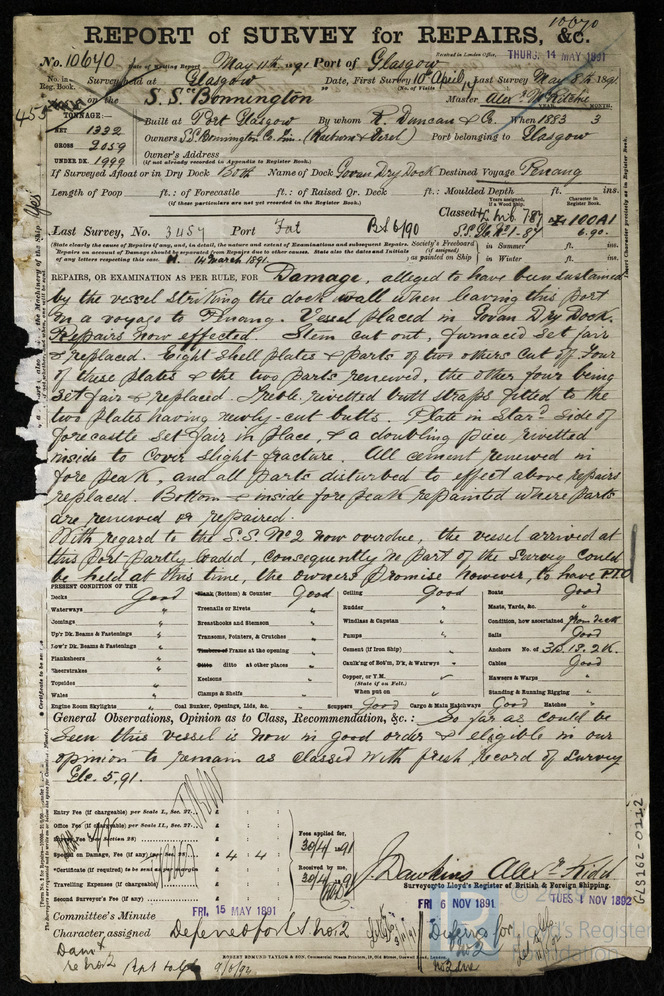 10640
REPORT of SURVEY for REPAIRS, &c.
No. 10640 Date of Writing Report May 11th 1891 Port of Glasgow Received in London Office, THURS. 14 MAY 1891
No. in Reg. Book. Survey held at Glasgow Date, First Survey 10th April, Last Survey May 8th 1891
(No. of Visits 14)
455 on the S.S. "Bonnington" Master Alexr McRitchie
TONNAGE:— YEAR. MONTH.
NET 1332 Built at Port Glasgow By whom R. Duncan & Co. When 1883 3
GROSS 2059 Owners S.S. Bonnington Co. Lim. (Raeburn & Verel) Port belonging to Glasgow
UNDER DK. 1999 Owner's Address
(if not already recorded in Appendix to Register Book.)
If Surveyed Afloat or in Dry Dock Both Name of Dock Govan Dry Dock Destined Voyage Penang
Length of Poop ft.: of Forecastle ft.: of Raised Qr. Deck ft.: Moulded Depth ft. ins.
(If these particulars are not yet recorded in the Register Book.)
Years assigned, if a Wood Ship. Character in Register Book.
Classed 100A1
Last Survey, No. 3457 Port Fat BS 6/90 S.S. No. 1-87 6.90.
(State clearly the cause of Repairs, if any, and, in detail, the nature and extent of Examinations and subsequent Repairs.
Repairs on account of Damage should be separated from Repairs due to other causes. State also the dates and Initials
of any letters respecting this case. H. 14 March 1891.
Society's Freeboard (if assigned) as painted on Ship in Summer ft. ins.
in Winter ft. ins.
REPAIRS, OR EXAMINATION AS PER RULE, FOR Damage, alleged to have been sustained
by the vessel striking the dock wall when leaving this port
on a voyage to Penang. Vessel placed in Govan Dry Dock.
Repairs now effected. Stem cut out, furnaced set fair
& replaced. Eight shell plates & parts of two others cut off. Four
of these plates & the two parts renewed, the other four being
set fair & replaced. Treble rivetted butt straps fitted to the
two plates having newly-cut butts. Plate in Stard. side of
forecastle set fair in place, & a doubling piece rivetted
inside to cover slight fracture. All cement renewed in
fore peak, and all parts disturbed to effect above repairs
replaced. Bottom & inside fore peak repainted where parts
are renewed or repaired.
With regard to the S.S. No. 2 now overdue, the vessel arrived at
this port partly loaded, consequently no part of the survey could
be held at this time, the owners promise however, to have P.T.O
PRESENT CONDITION OF THE
Decks Good
Waterways "
Comings "
Up'r Dk. Beams & Fastenings "
Low'r Dk. Beams & Fastenings "
Planksheers "
Sheerstrakes "
Topsides "
Wales "
Engine Room Skylights "
Plank (Bottom) & Counter Good
Treenails or Rivets "
Breasthooks and Stemson "
Transoms, Pointers, & Crutches "
Timbers of Frame at the opening
Ditto ditto at other places "
Keelsons "
Clamps & Shelfs
Coal Bunker, Openings, Lids, &c. "
Ceiling Good
Rudder "
Windlass & Capstan "
Pumps "
Cement (if Iron Ship) "
Caulk'ng of Bot'm, D'k, & Watrwys "
Copper, or Y.M.
(State if on Felt.)
When put on
Scuppers Good Cargo & Main Hatchways Good
Boats Good
Masts, Yards, &c. "
Condition, how ascertained from deck
Sails Good
Anchors No. of 3B. 1S. 2K.
Cables Good
Hawsers & Warps "
Standing & Running Rigging "
Hatches "
General Observations, Opinion as to Class, Recommendation, &c.: So far as could be
seen this vessel is now in good order & eligible in our
opinion to remain as classed with fresh record of Survey
Glc. 5,91.
Entry Fee (if chargeable) per Scale I., Sec. 27.. £ : :
Office Fee (if chargeable) per Scale II., Sec. 27.. £ : :
Survey Fee (see Section 28) £ : :
Special on Damage, Fee (if any) £ 4 : 4 :
*Certificate (if required) to be sent as per margin
Travelling Expenses (if chargeable) £ : :
Second Surveyor's Fee (if any) £ : :
Fees applied for, 30/4 1891
Received by me, 30/4 1891
J. Dawkins Alexr. Kidd
Surveyor to Lloyd's Register of British & Foreign Shipping.
Committee's Minute FRI. 15 MAY 1891 FRI 6 NOV 1891 TUES 1 NOV 1892
Character assigned Deferred for SS No. 2
Deferred for
No 2
ROBERT EDMUND TAYLOR & SON, Commercial Steam Printers, 19, Old Street, Goswell Road, London
GLS162-0112
Lloyd's Register
Foundation